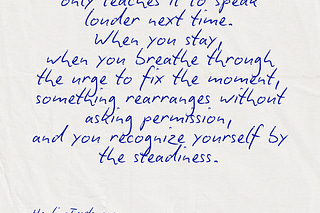 only teaches it to speak
louder next time.
When you stay,
when you breathe through
the urge to fix the moment,
something rearranges without
asking permission,
and you recognize yourself by
the steadiness.